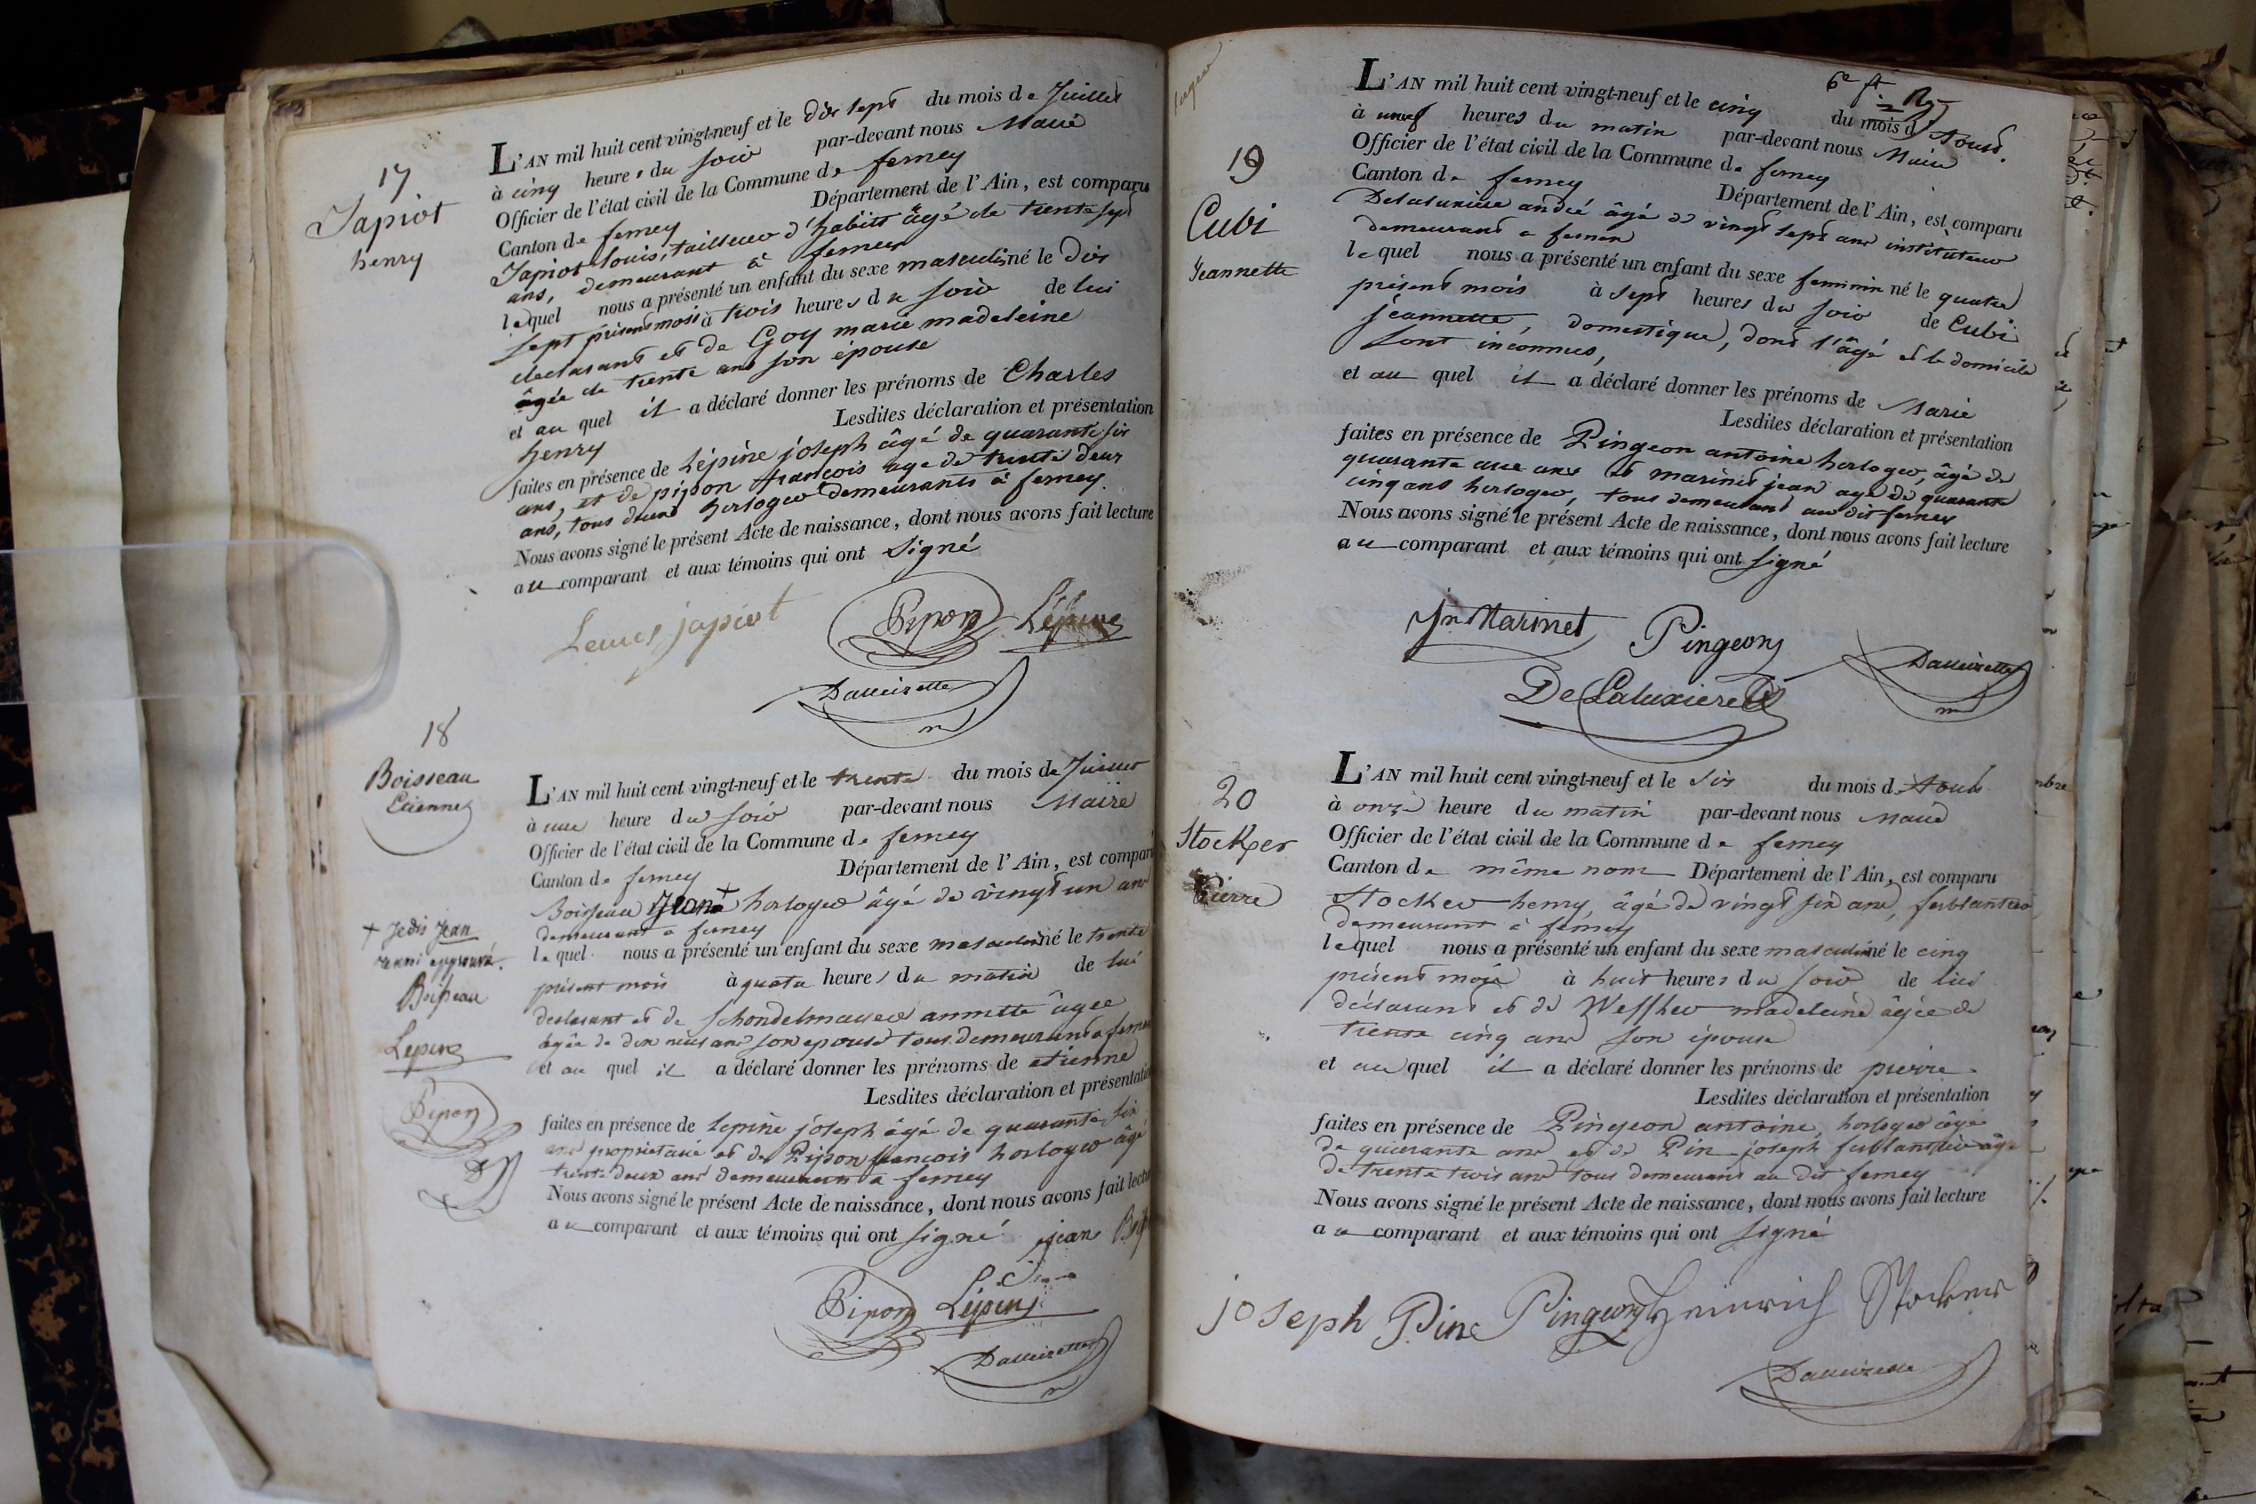 17
Japiot
henry
L'AN mil huit cent vingt-neuf et le dix sept du mois de Juillet
à cinq heures du soir par-devant nous Maire
Officier de l'état civil de la Commune de ferney
Canton de ferney Département de l'Ain, est comparu
Japiot louis, tailleur d'habits âgé de trente sept
ans, demeurant à ferney
lequel nous a présenté un enfant du sexe masculin né le dix
sept présent mois à trois heures du soir de lui
declarant et de Goy marie madeleine
âgée de trente ans son épouse
et au quel il a déclaré donner les prénoms de Charles
henry Lesdites déclaration et présentation
faites en présence de Lépine joseph âgé de quarante six
ans, et de pipon francois age de trente deux
ans, tous deux horloger demeurants à ferney.
Nous avons signé le présent Acte de naissance, dont nous avons fait lecture
au comparant et aux témoins qui ont signé
Louis japiot Pipon Lépine
Dalleizette
18
Boisseau
Etienne
L'AN mil huit cent vingt-neuf et le trente du mois de Juillet
à une heure du soir par-devant nous Maire
Officier de l'état civil de la Commune de ferney
Canton de ferney Département de l'Ain, est compar
Boisseau Jean + horloger âgé de vingt un ans
demeurant a ferney
lequel nous a présenté un enfant du sexe masculin né le trente
présent mois à quatre heures du matin de lui
declarant et de annette âgée
âgée de dix neuf ans son epouse tous demeurant a ferney
et au quel il a déclaré donner les prénoms de etienne
Lesdites déclaration et présentati
faites en présence de Lepine joseph âgé de quarante six
ans proprietaire et de Pipon francois horloger âgé
trente deux ans demeurant a ferney
Nous avons signé le présent Acte de naissance, dont nous avons fait lectu
au comparant et aux témoins qui ont signé jean
Pipon Lépine
Dalleizette
+ Je dis Jean
approuvé.
Boisseau
Lepine
Pipon
19
Cubi
Jeannette
L'AN mil huit cent vingt-neuf et le cinq du mois d'Aout.
à neuf heures du matin par-devant nous Maire
Officier de l'état civil de la Commune de ferney
Canton de ferney Département de l'Ain, est comparu
Delaluxiere andré âgé de vingt sept ans instituteur
demeurant a ferney
lequel nous a présenté un enfant du sexe feminin né le quatre
présent mois à sept heures du soir de Cubi
jeannette, domestique, dont l'âge et le domicile
sont inconnus,
et au quel il a déclaré donner les prénoms de Marie
Lesdites déclaration et présentation
faites en présence de Pingeon antoine horloger, âgé de
quarante ans et marinet jean age de quarante
cinq ans horloger, tous demeurant au dit ferney
Nous avons signé le présent Acte de naissance, dont nous avons fait lecture
au comparant et aux témoins qui ont signé
Jn Marinet Pingeon
De Laluxiere Dalleizette
20
Stocker
Pierre
L'AN mil huit cent vingt-neuf et le six du mois d'Aout
à onze heure du matin par-devant nous Maire
Officier de l'état civil de la Commune de ferney
Canton de même nom Département de l'Ain, est comparu
Stocker henry, âgé de vingt six ans, ferblantier
demeurant à ferney
lequel nous a présenté un enfant du sexe masculin né le cinq
présent mois à huit heures du soir de lui
déclarant et de madeleine âgée de
trente cinq ans son épouse
et au quel il a déclaré donner les prénoms de pierre
Lesdites déclaration et présentation
faites en présence de Pingeon antoine, horloger âgé
de quarante ans et de Pin joseph ferblantier âgé
de trente trois ans tous demeurant au dit ferney
Nous avons signé le présent Acte de naissance, dont nous avons fait lecture
au comparant et aux témoins qui ont signé
joseph Pin Pingeon Heinrich Stocker
Dalleizette